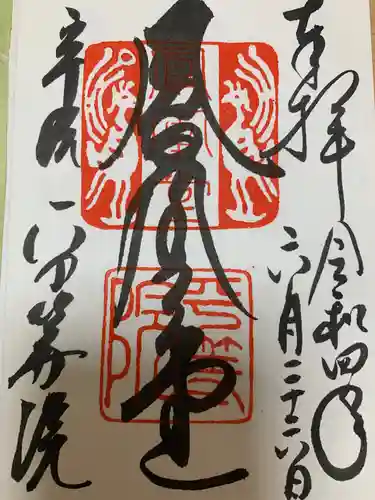 奉拝 令和四年
六月二十六日
鳳凰堂
宇治 平等院